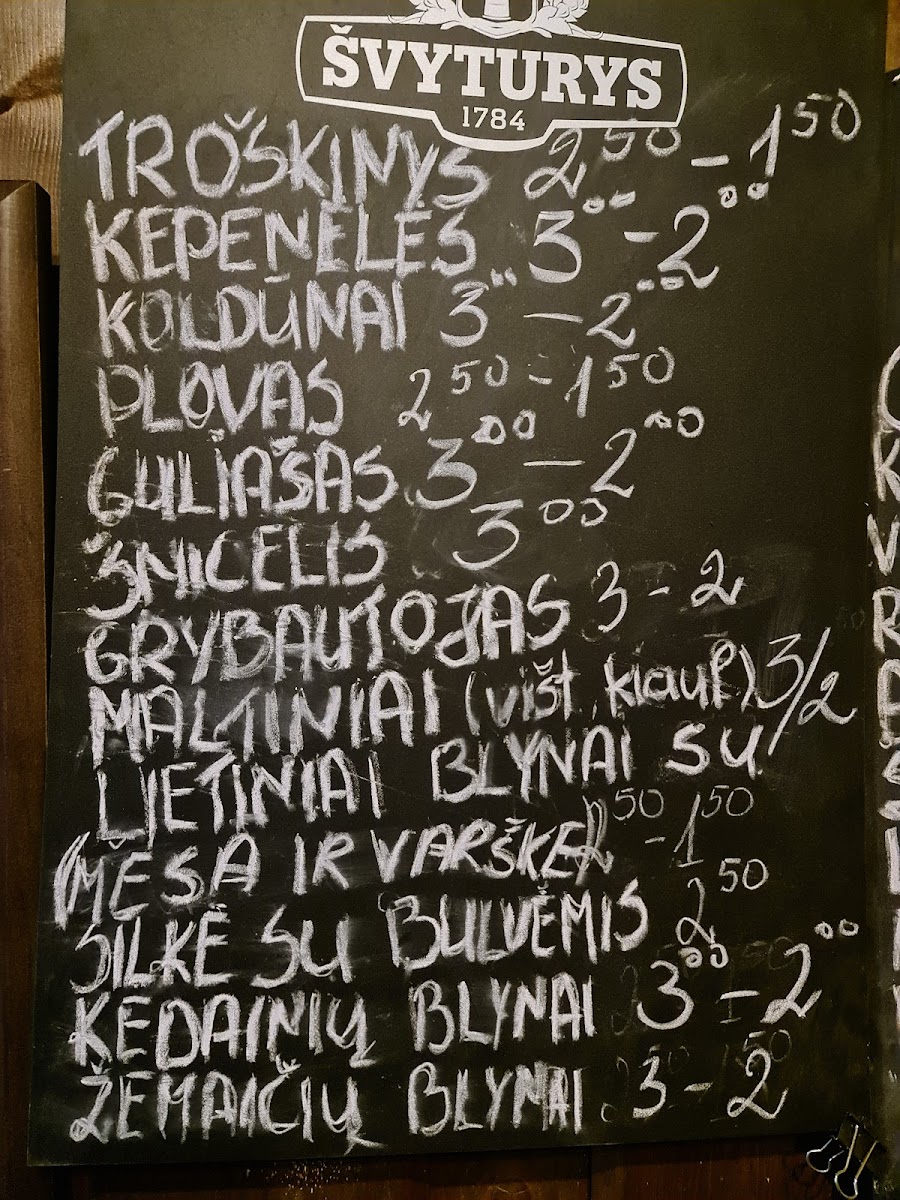 ŠVYTURYS
1784
TROŠKINYS 2⁵⁰ - 1⁵⁰
KEPENĖLĖS 3⁰⁰ - 2⁰⁰
KOLDŪNAI 3⁰⁰ - 2⁰⁰
PLOVAS 2⁵⁰ - 1⁵⁰
GULIAŠAS 3⁰⁰ - 2⁰⁰
ŠNICELIS 3⁰⁰
GRYBAUTOJAS 3 - 2
MALTINIAI (višt, kiaul.) 3/2
LIETINIAI BLYNAI SU
(MĖSA IR VARŠKE) 2⁵⁰ - 1⁵⁰
SILKĖ SU BULVĖMIS 2⁵⁰
KĖDAINIŲ BLYNAI 3⁰⁰ - 2⁰⁰
ŽEMAIČIŲ BLYNAI 3 - 2